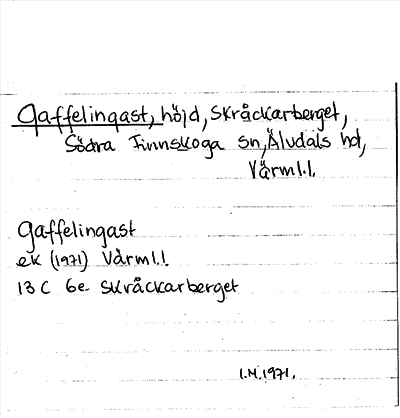 Gaffelingast, höjd, Skråckarberget,
Södra Finnskoga sn, Älvdals hd,
Värml.l.
Gaffelingast
ek (1971) Värml.l.
13 C 6e Skråckarberget
I.M. 1971.